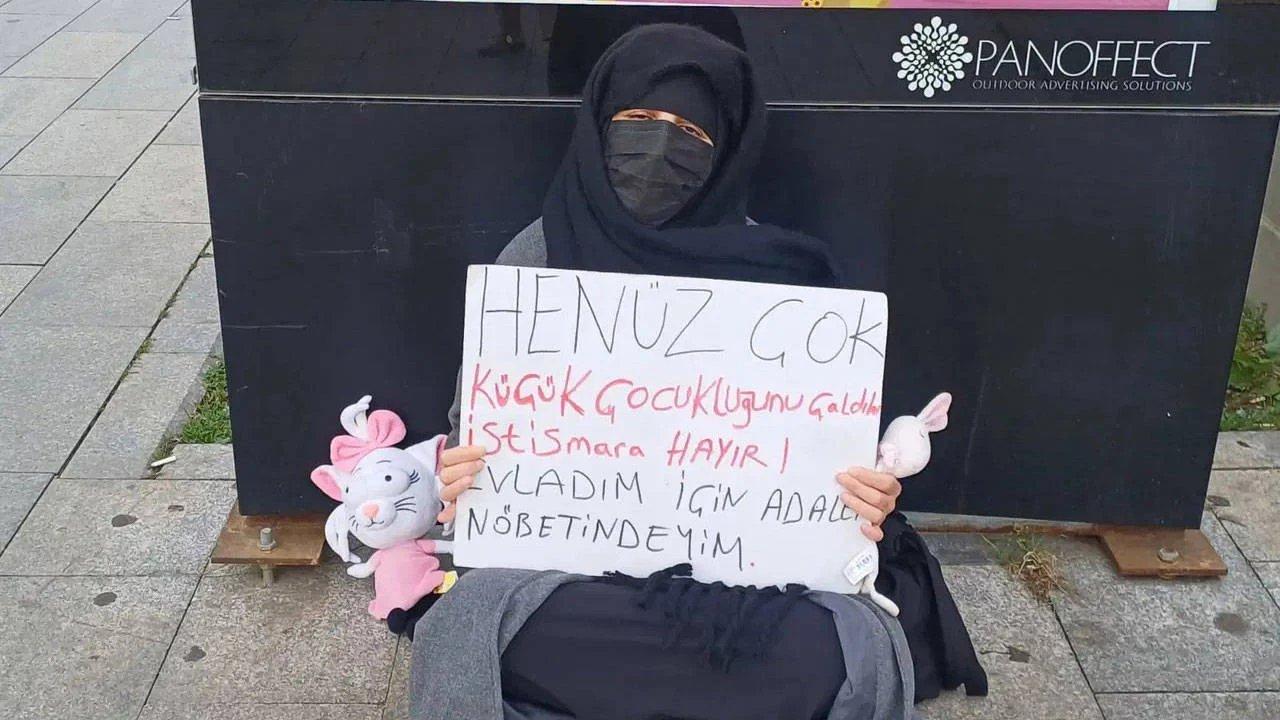 PANOFFECT
OUTDOOR ADVERTISING SOLUTIONS
HENÜZ ÇOK
KÜÇÜK ÇOCUKluğunu Çaldılar
İstismara HAYIR!
EVLADIM İÇİN ADALET
NÖBETİNDEYİM.